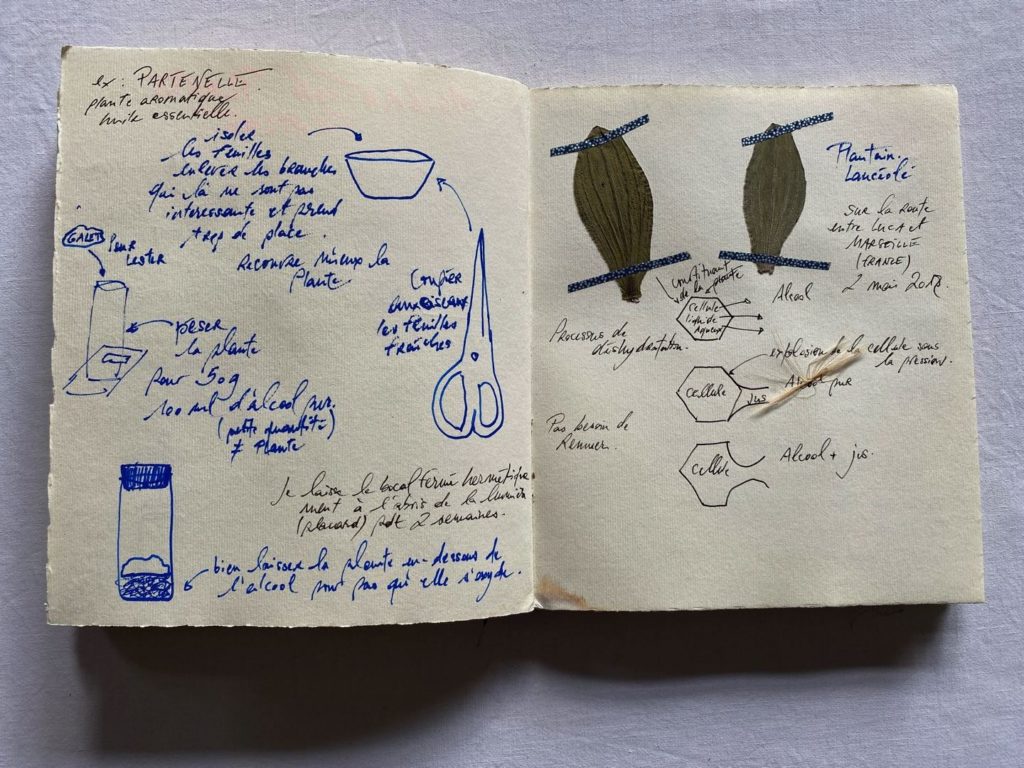 ex: PARTENELLE
plante aromatique
huile essentielle.
isoler
les feuilles
enlever les branches
qui là ne sont pas
interessante et prend
trop de place.
Recouvre mieux la
Plante.
GALET
Pour
Lester
Couper
aux ciseaux
les feuilles
fraîches
peser
la plante
pour 50g
100 ml d'alcool pur.
(petite quantité)
≠ Plante
Je laisse le bocal fermé hermétique
ment à l'abris de la lumière
(placard) pdt 2 semaines.
bien laisser la plante en-dessous de
l'alcool pour pas qu'elle s'oxyde.
Plantain
Lancéolé
sur la route
entre LUCA et
MARSEILLE
(FRANCE)
2 mai
Constituant
de la plante
cellule
liquide
Alcool
Processus de
dishydratation.
explosion de la cellule sous
la pression.
cellule
Jus
pur
Pas besoin de
Remuer.
cellule
Alcool + jus.